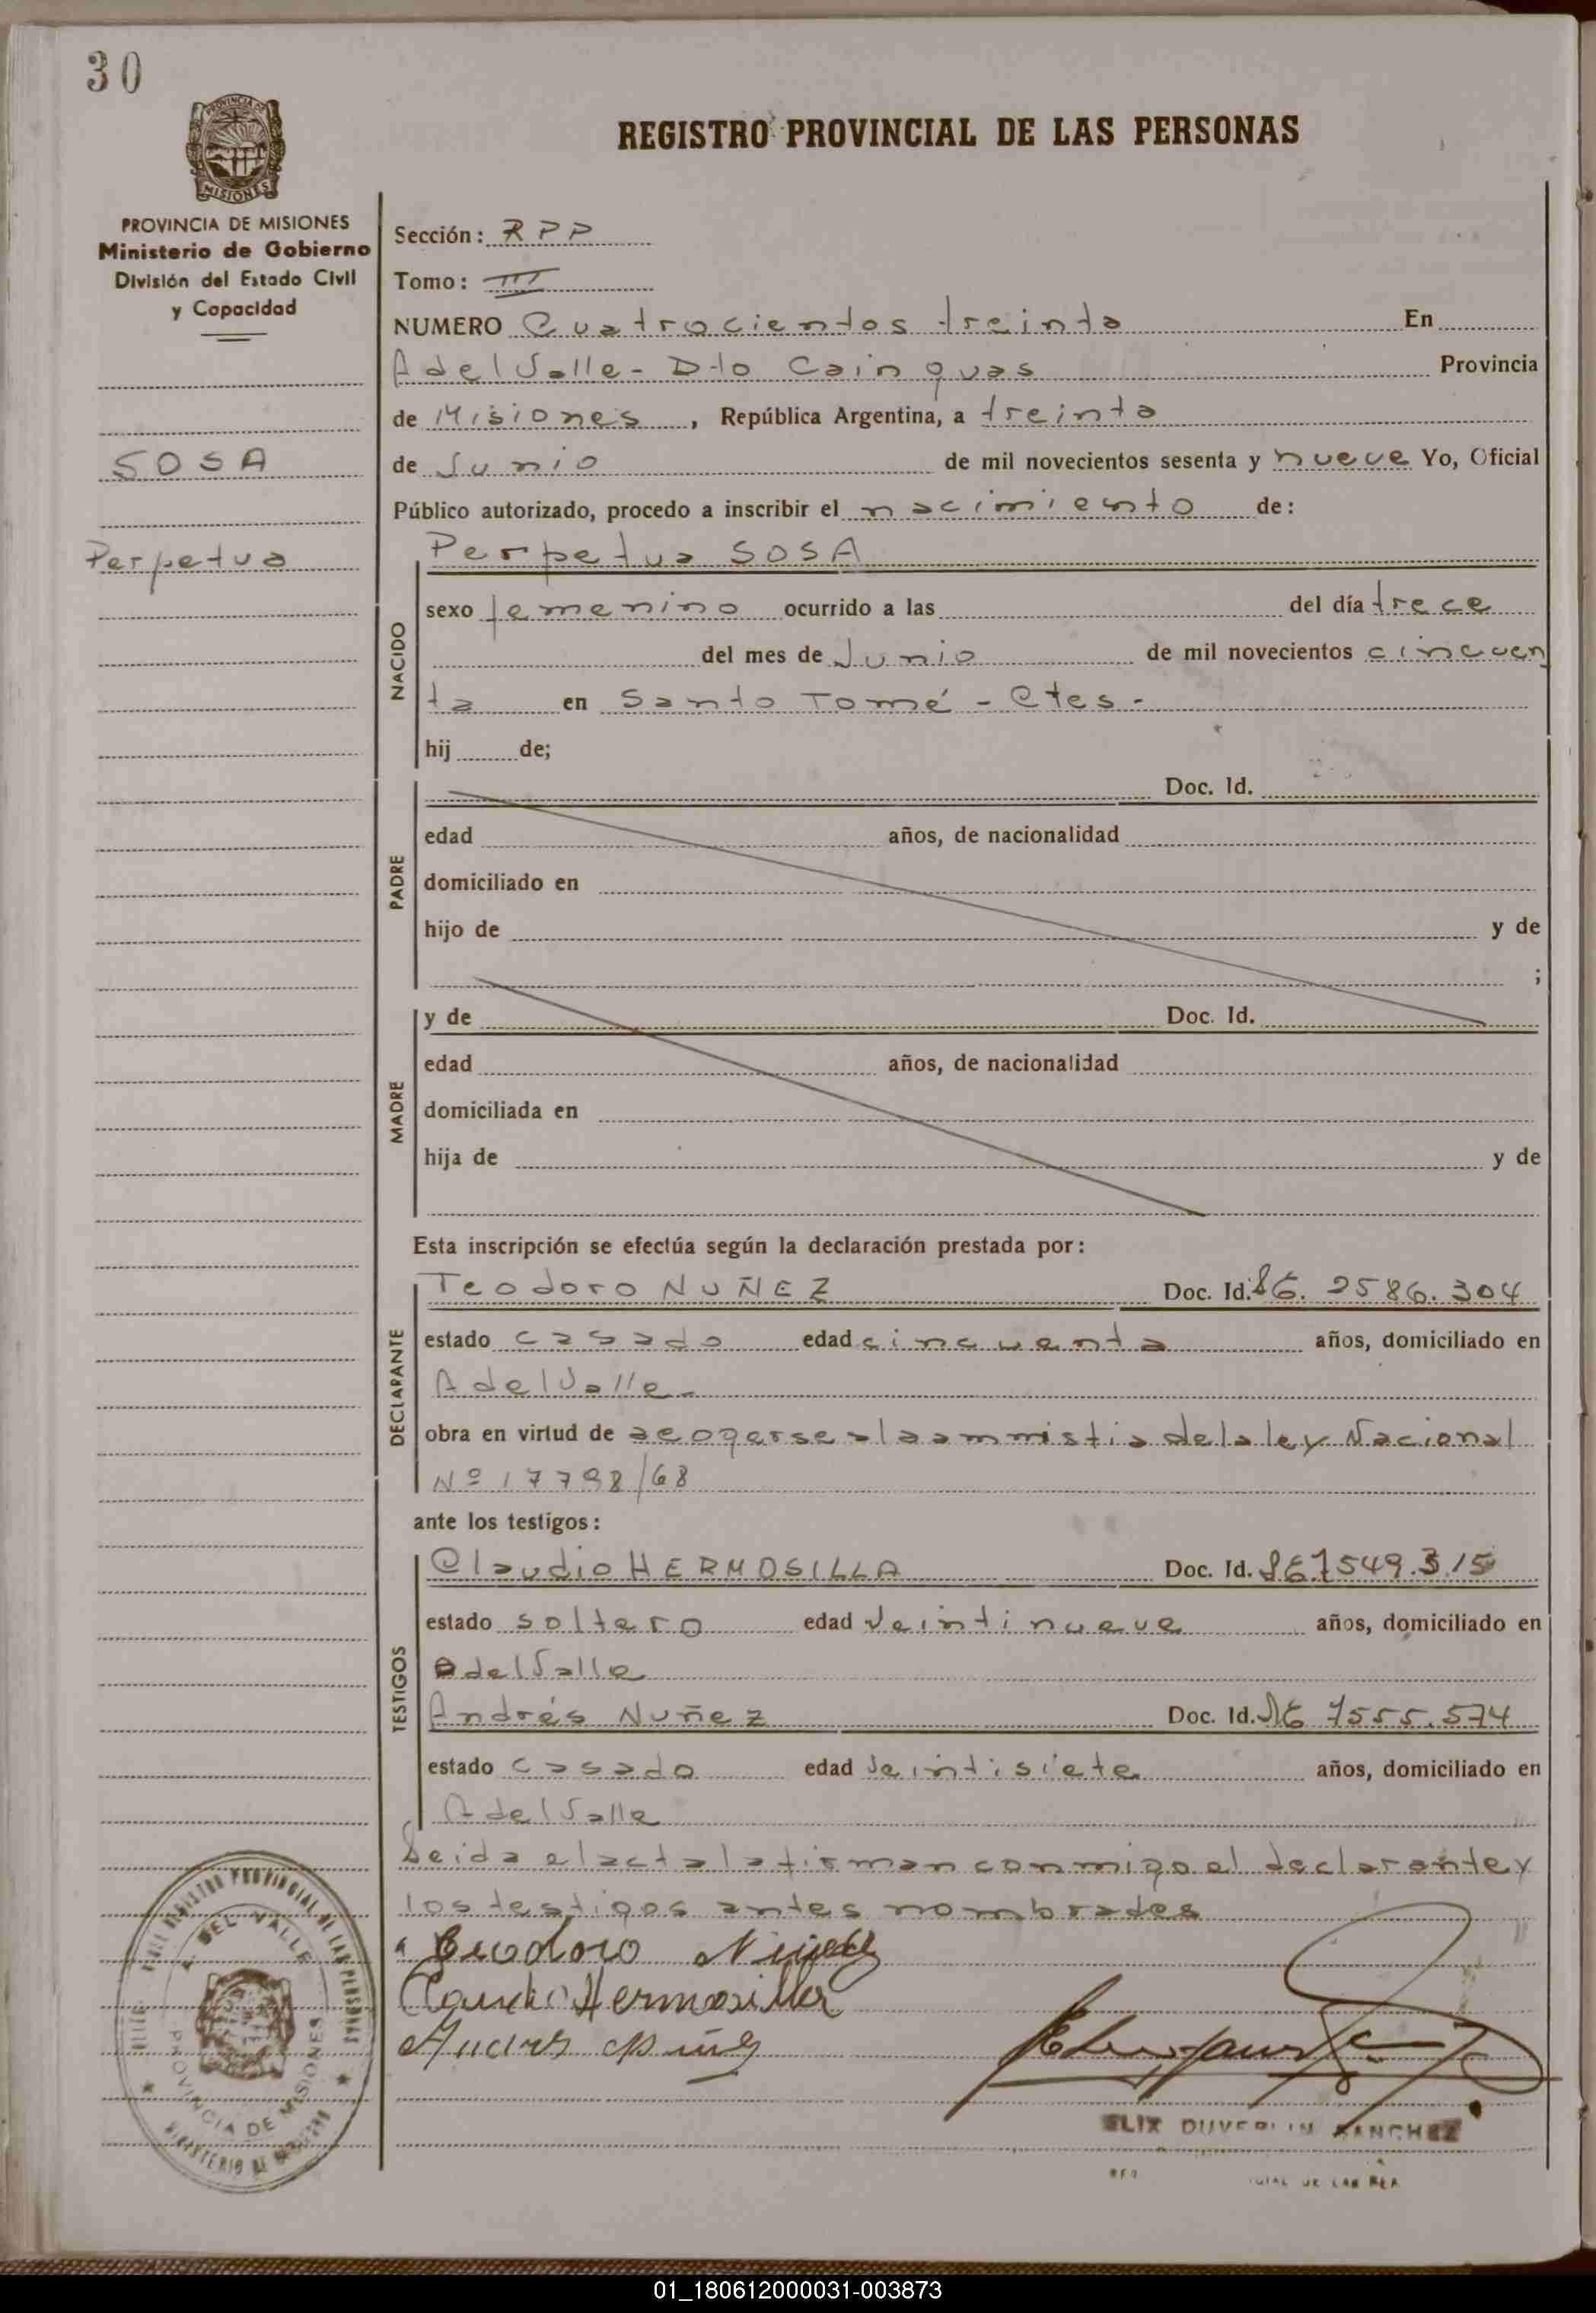 30
PROVINCIA DE
MISIONES
PROVINCIA DE MISIONES
Ministerio de Gobierno
División del Estado Civil
y Capacidad
SOSA
Perpetua
REGISTRO PROVINCIAL DE LAS PERSONAS
Sección: RPP
Tomo: III
NUMERO Cuatrocientos treinta En
A del Valle - Dto Cainguas Provincia
de Misiones, República Argentina, a treinta
de Junio de mil novecientos sesenta y nueve Yo, Oficial
Público autorizado, procedo a inscribir el nacimiento de:
Perpetua SOSA
NACIDO
sexo femenino ocurrido a las del día trece
del mes de Junio de mil novecientos cincuen
ta en Santo Tomé - Ctes -
hij de;
PADRE
Doc. Id.
edad años, de nacionalidad
domiciliado en
hijo de y de
;
MADRE
y de Doc. Id.
edad años, de nacionalidad
domiciliada en
hija de y de
Esta inscripción se efectúa según la declaración prestada por:
DECLARANTE
Teodoro NUÑEZ Doc. Id. 2586.304
estado casado edad cincuenta años, domiciliado en
A del Valle -
obra en virtud de acogerse a la ammistia de la ley Nacional
Nº 17798/68
ante los testigos:
TESTIGOS
Claudio HERMOSILLA Doc. Id. 7549.315
estado soltero edad veintinueve años, domiciliado en
A del Valle
Andrés Nuñez Doc. Id. 7555.574
estado casado edad veintisiete años, domiciliado en
A del Valle
Leida el acta la firman conmigo el declarante y
los testigos antes nombrados
Teodoro Nuñez
Claudio Hermosilla
Andrés Nuñez
REGISTRO PROVINCIAL DE LAS PERSONAS
A. DEL VALLE
PROVINCIA DE MISIONES
MINISTERIO DE GOBIERNO
SANCHEZ
01_180612000031-003873